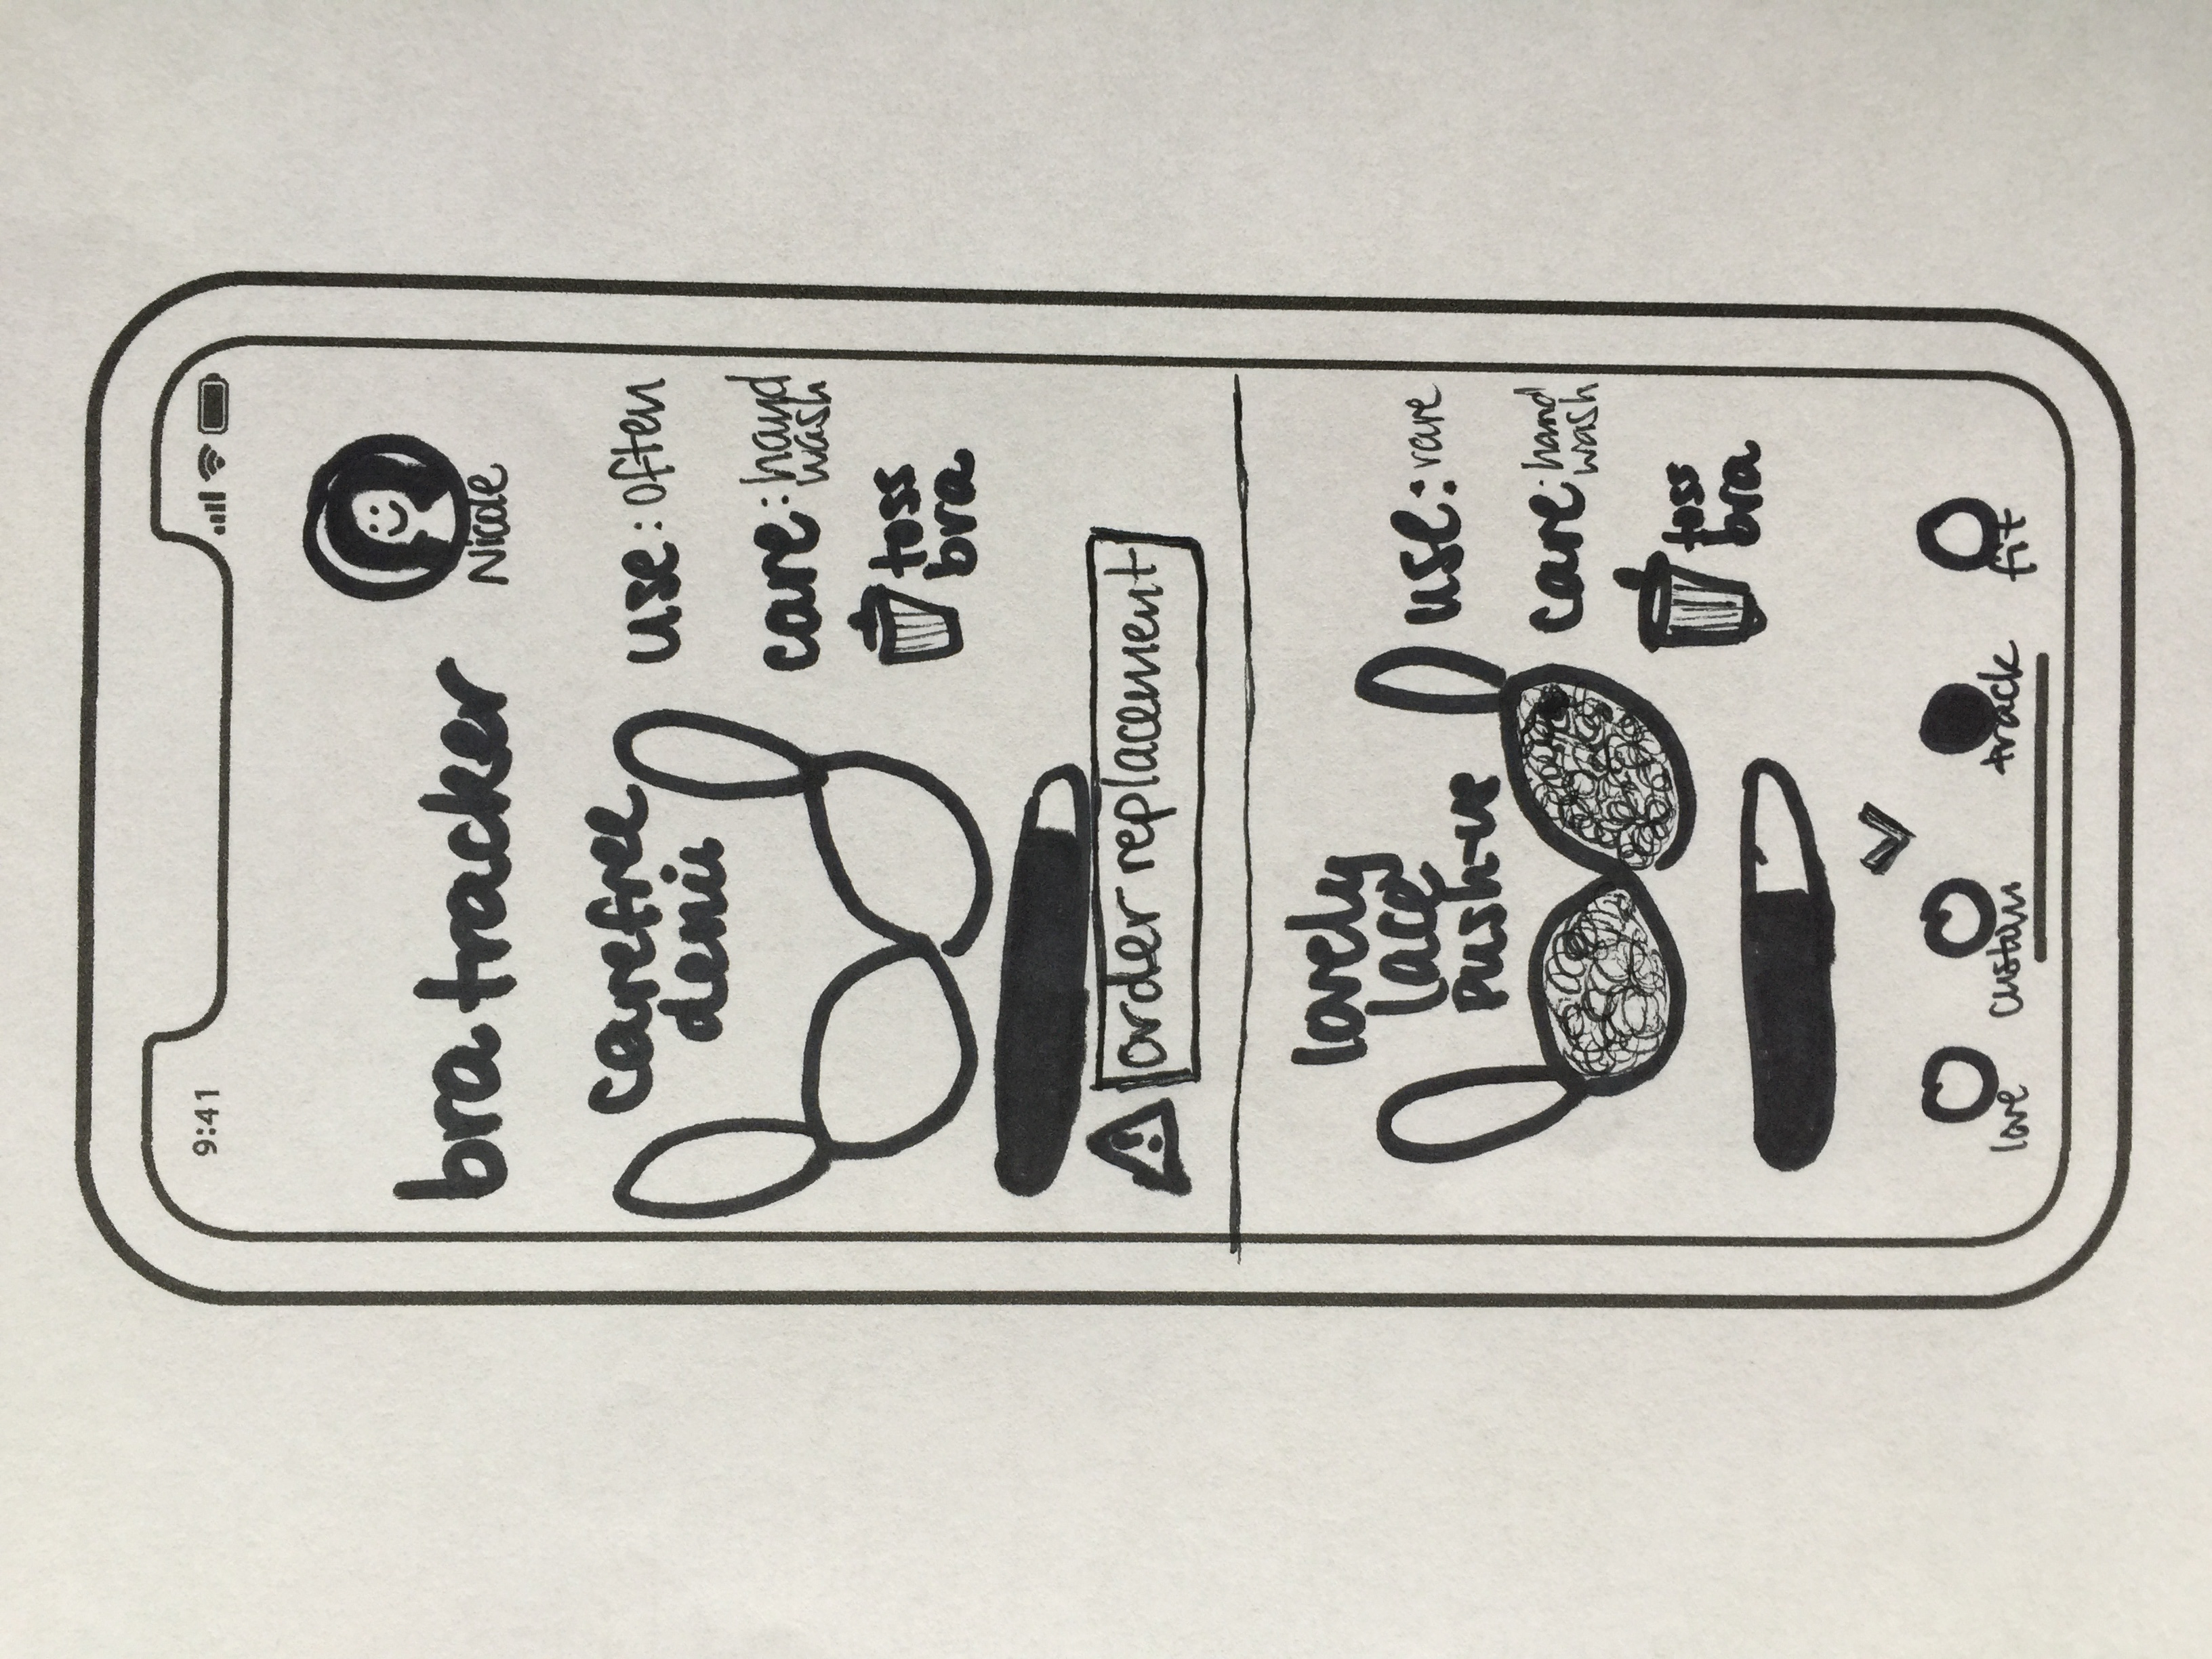 9:41
bra tracker
Nicole
carefree
use: often
care: hand
wash
toss
bra
order replacement
lovely
lace
push-up
use: rare
care: hand
wash
toss
bra
love
custom
track
fit